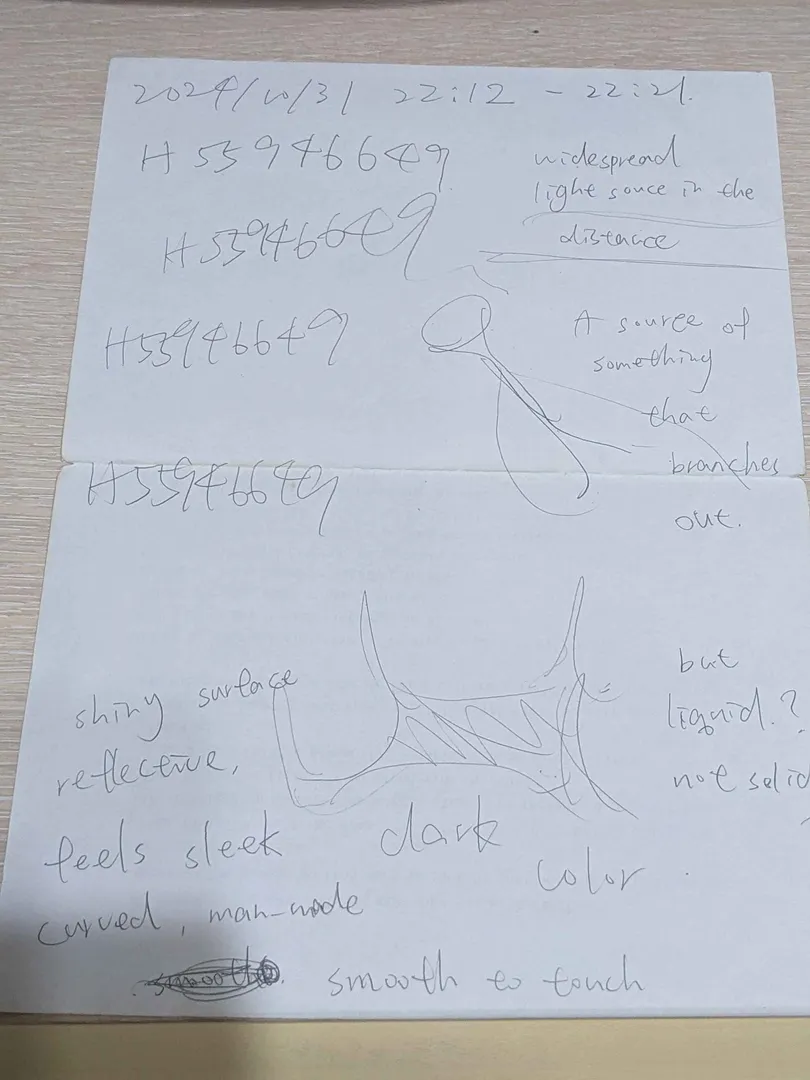 2024/10/31 22:12 - 22:21.
H 55946649
widespread
light souce in the
distance
H55946649
H55946649
A source of
something
that
branches
out.
H55946649
shiny surface
reflective,
feels sleek
curved, man-made
but
liquid.?
not solid
dark
color.
smooth
smooth to touch